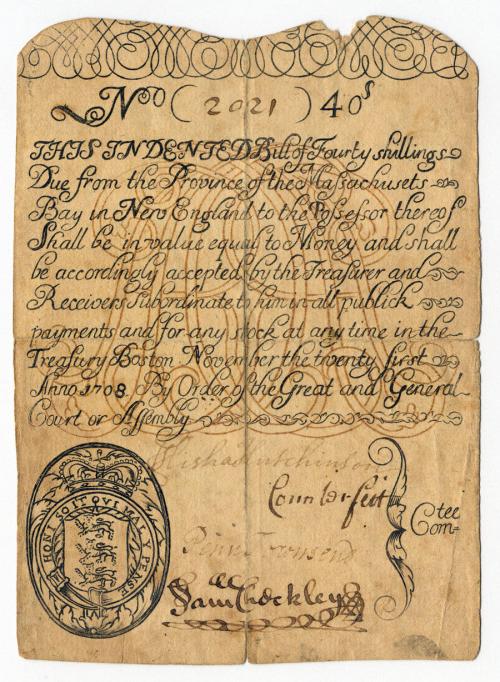 Noo ( 2021 ) 40s
THIS INDENTED Bill of Fourty shillings
Due from the Province of the Massachusets
Bay in New England to the Possessor thereof
Shall be in value equal to Money and shall
be accordingly accepted by the Treasurer and
Receivers subordinate to him in all publick
payments and for any stock at any time in the
Treasury Boston November the twenty first
Anno 1708 By Order of the Great and General
Court or Assembly
Elisha Hutchinson
Counterfeit
Com-tee
Penn Townsend
Sam Checkley
HONI SOIT QUI MAL Y PENSE